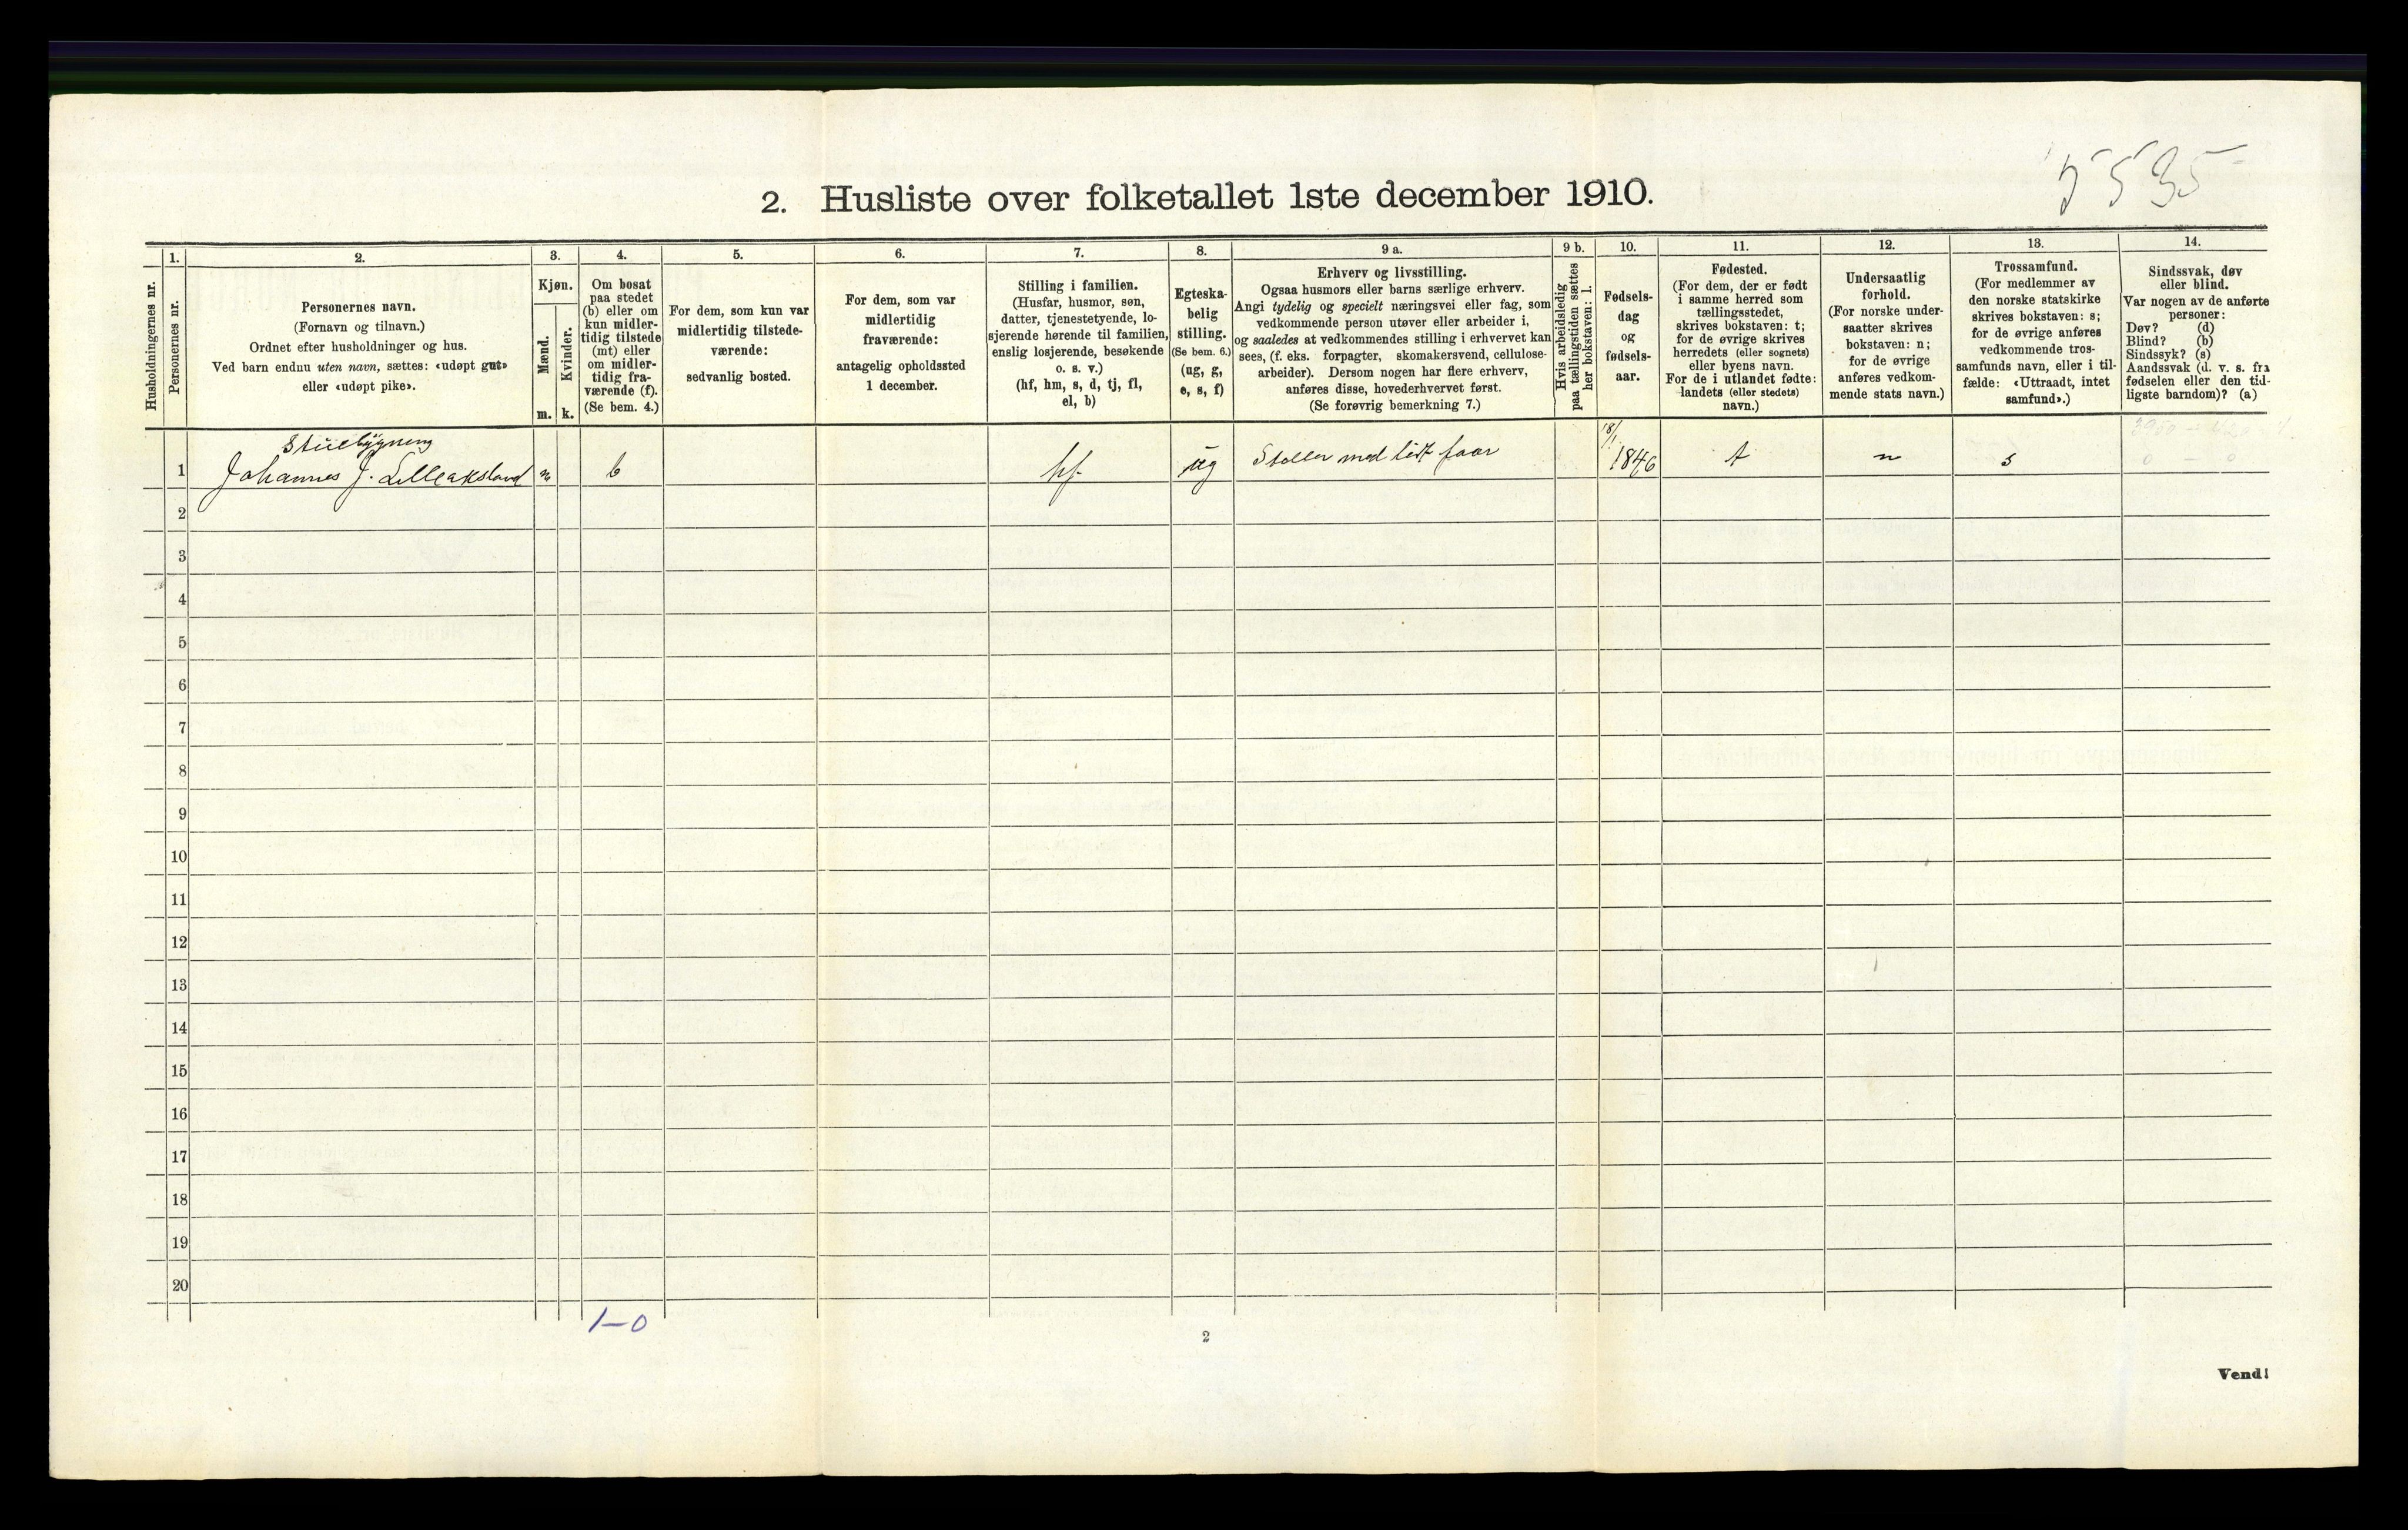 5535
2. Husliste over folketallet 1ste december 1910.
Husholdningernes nr.
1.
Personernes nr.
2.
Personernes navn.
(Fornavn og tilnavn.)
Ordnet efter husholdninger og hus.
Ved barn endnu uten navn, sættes: «udøpt gut»
eller «udøpt pike».
3.
Kjøn.
Mænd.
Kvinder.
m. k.
4.
Om bosat
paa stedet
(b) eller om
kun midler-
tidig tilstede
(mt) eller
om midler-
tidig fra-
værende (f).
(Se bem. 4.)
5.
For dem, som kun var
midlertidig tilstede-
værende:
sedvanlig bosted.
6.
For dem, som var
midlertidig
fraværende:
antagelig opholdssted
1 december.
7.
Stilling i familien.
(Husfar, husmor, søn,
datter, tjenestetyende, lo-
sjerende hørende til familien,
enslig losjerende, besøkende
o. s. v.)
(hf, hm, s, d, tj, fl,
el, b)
8.
Egteska-
belig
stilling.
(Se bem. 6.)
(ug, g,
e, s, f)
9 a.
Erhverv og livsstilling.
Ogsaa husmors eller barns særlige erhverv.
Angi tydelig og specielt næringsvei eller fag, som
vedkommende person utøver eller arbeider i,
og saaledes at vedkommendes stilling i erhvervet kan
sees, (f. eks. forpagter, skomakersvend, cellulose-
arbeider). Dersom nogen har flere erhverv,
anføres disse, hovederhvervet først.
(Se forøvrig bemerkning 7.)
9 b.
Hvis arbeidsledig
paa tællingstiden sættes
her bokstaven: l.
10.
Fødsels-
dag
og
fødsels-
aar.
11.
Fødested.
(For dem, der er født
i samme herred som
tællingsstedet,
skrives bokstaven: t;
for de øvrige skrives
herredets (eller sognets)
eller byens navn.
For de i utlandet fødte:
landets (eller stedets)
navn.)
12.
Undersaatlig
forhold.
(For norske under-
saatter skrives
bokstaven: n;
for de øvrige
anføres vedkom-
mende stats navn.)
13.
Trossamfund.
(For medlemmer av
den norske statskirke
skrives bokstaven: s;
for de øvrige anføres
vedkommende tros-
samfunds navn, eller i til-
fælde: «Uttraadt, intet
samfund».)
14.
Sindssvak, døv
eller blind.
Var nogen av de anførte
personer:
Døv? (d)
Blind? (b)
Sindssyk? (s)
Aandssvak (d. v. s. fra
fødselen eller den tid-
ligste barndom)? (a)
Stuebygning
1 Johannes J. Lilleaksland m b hf ug Staller med lidt faar 18/1 1846 t n s
0 - 0
2
3
4
5
6
7
8
9
10
11
12
13
14
15
16
17
18
19
20
1-0
2
Vend!